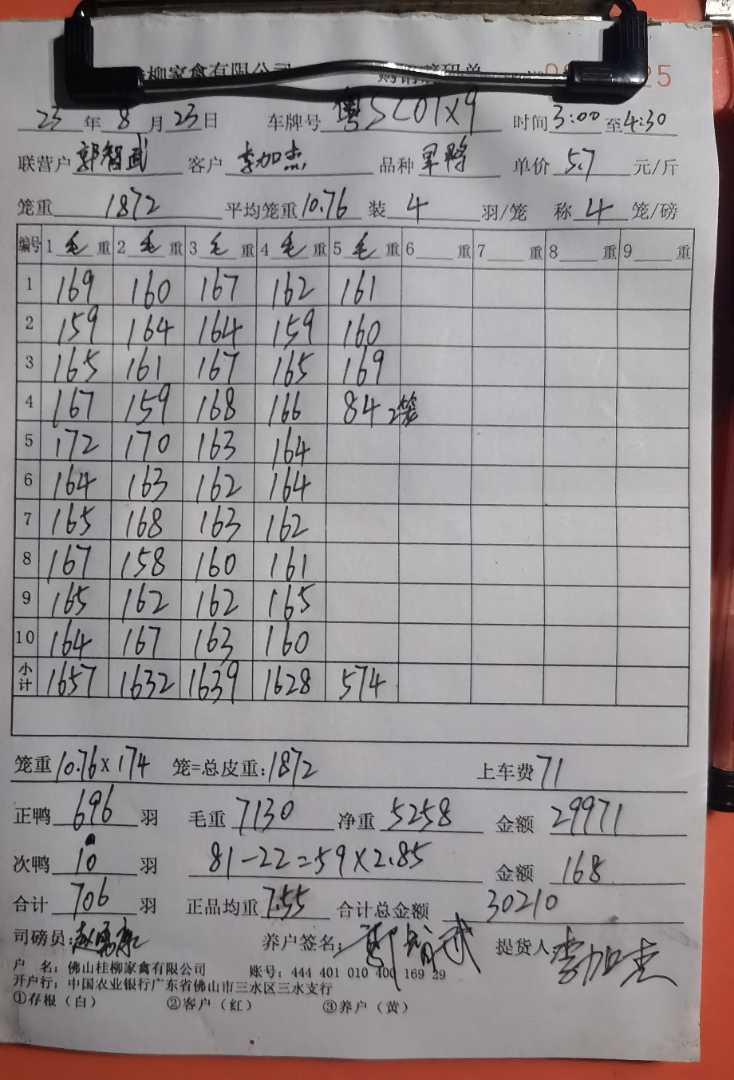 桂柳家禽有限公司
23 年 8 月 23 日 车牌号 粤SC01X9 时间 3:00 至 4:30
联营户 郭智武 客户 李加杰 品种 单价 5.7 元/斤
笼重 1872 平均笼重 10.76 装 4 羽/笼 称 4 笼/磅
编号 1 毛 重 2 毛 重 3 毛 重 4 毛 重 5 毛 重 6 重 7 重 8 重 9 重
1 169 160 167 162 161
2 159 164 164 159 160
3 165 161 167 165 169
4 167 159 168 166 84 2笼
5 172 170 163 164
6 164 163 162 164
7 165 168 163 162
8 167 158 160 161
9 165 162 162 165
10 164 167 163 160
小计 1657 1632 1639 1628 574
笼重 10.76 x 174 笼=总皮重: 1872 上车费 71
正鸭 696 羽 毛重 7130 净重 5258 金额 29971
次鸭 10 羽 81-22=59X2.85 金额 168
合计 706 羽 正品均重 7.55 合计总金额 30210
司磅员: 养户签名: 郭智武 提货人 李加杰
户 名: 佛山桂柳家禽有限公司 账号: 444 401 010 400 169 29
开户行: 中国农业银行广东省佛山市三水区三水支行
①存根（白） ②客户（红） ③养户（黄）